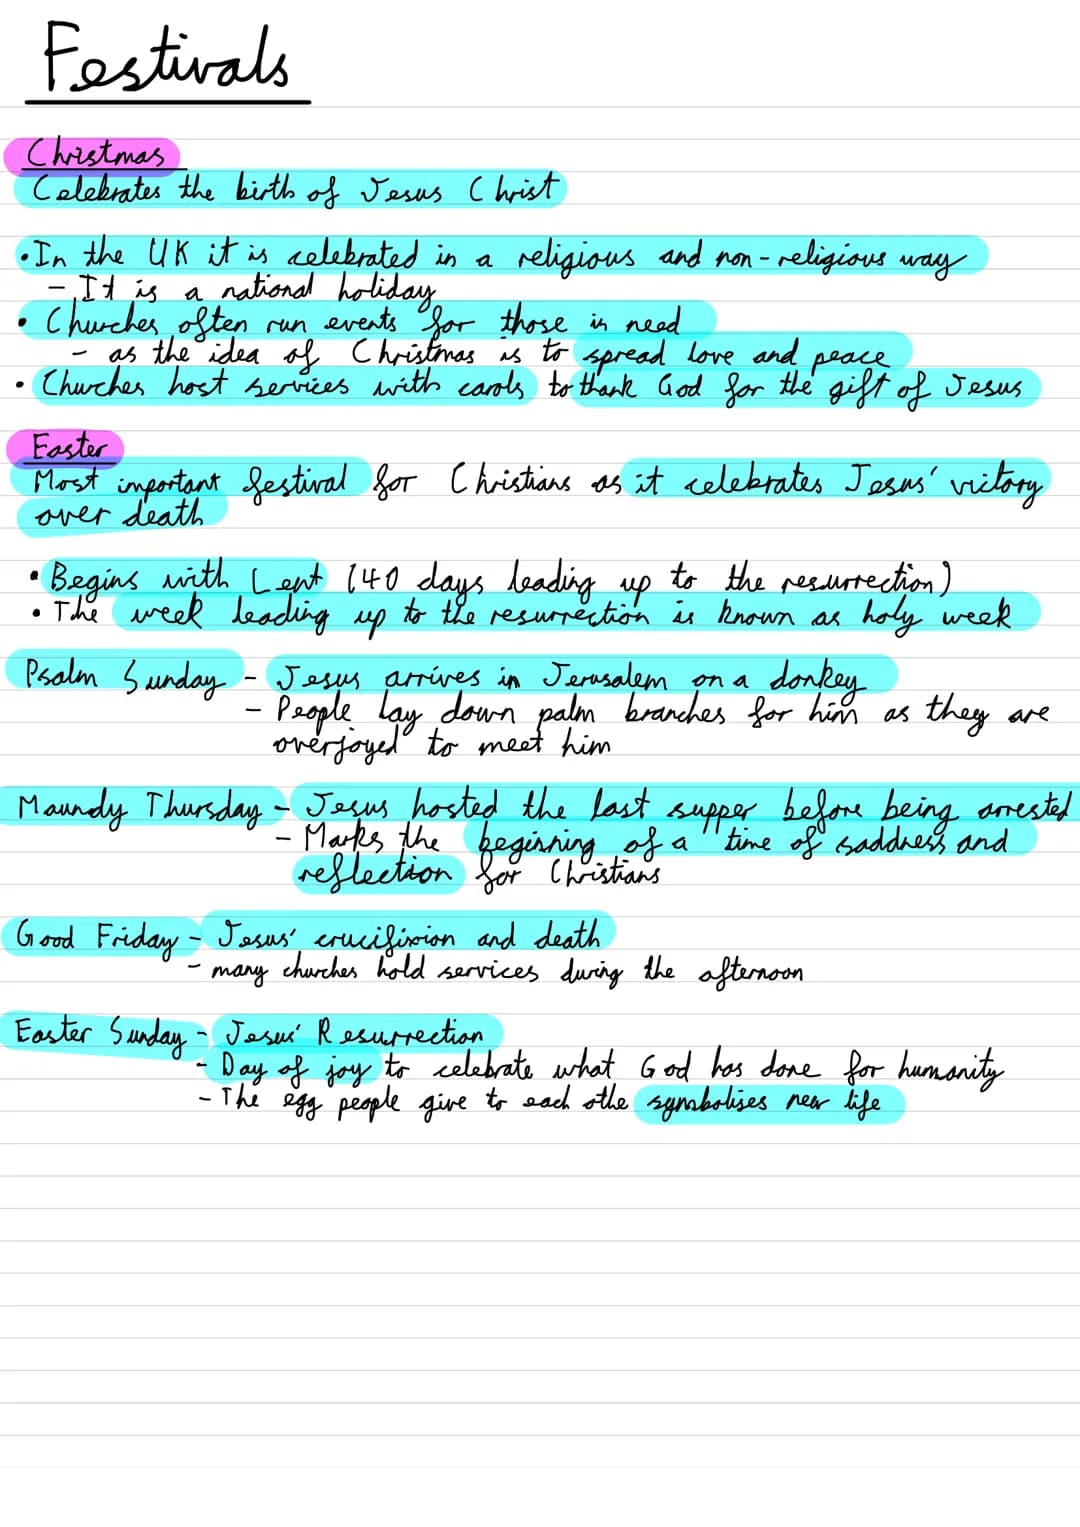 Festivals
Christmas
Celebrates the birth of Jesus Christ
• In the UK it is celebrated in a religious and non-religious way
- It is a national holiday
• Churches often run events for those in need
- as the idea of Christmas is to spread love and peace
• Churches host services with carols to thank God for the gift of Jesus
Easter
Most important festival for Christians as it celebrates Jesus' victory
over death
• Begins with Lent (40 days leading up to the resurrection)
• The week leading up to the resurrection is known as holy week
Psalm Sunday - Jesus arrives in Jerusalem on a donkey
- People lay down palm branches for him as they are
overjoyed to meet him
Maundy Thursday - Jesus hosted the last supper before being arrested
- Marks the beginning of a time of saddness and
reflection for Christians
Good Friday - Jesus' crucifixion and death
- many churches hold services during the afternoon
Easter Sunday - Jesus' Resurrection
- Day of joy to celebrate what God has done for humanity
- The egg people give to each othe symbolises new life